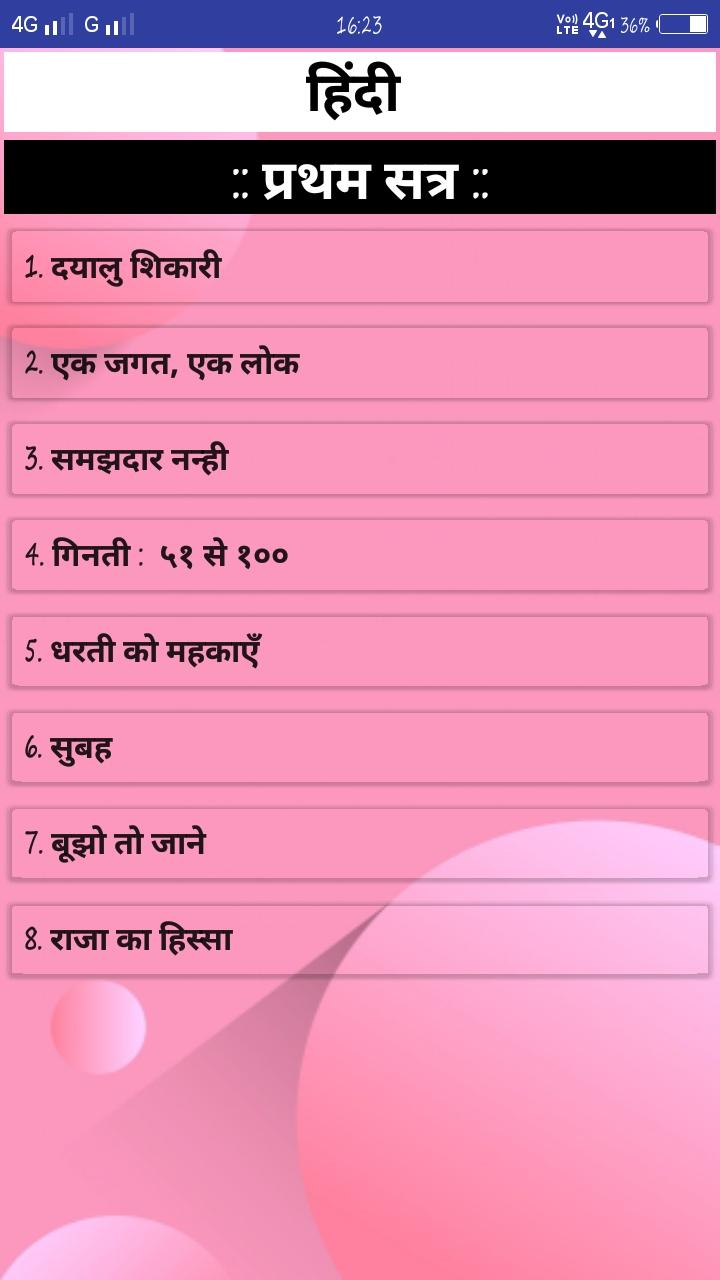 4G G 16:23 Vo)) LTE 4G1 36%
हिंदी
:: प्रथम सत्र ::
1. दयालु शिकारी
2. एक जगत, एक लोक
3. समझदार नन्ही
4. गिनती : ५१ से १००
5. धरती को महकाएँ
6. सुबह
7. बूझो तो जाने
8. राजा का हिस्सा